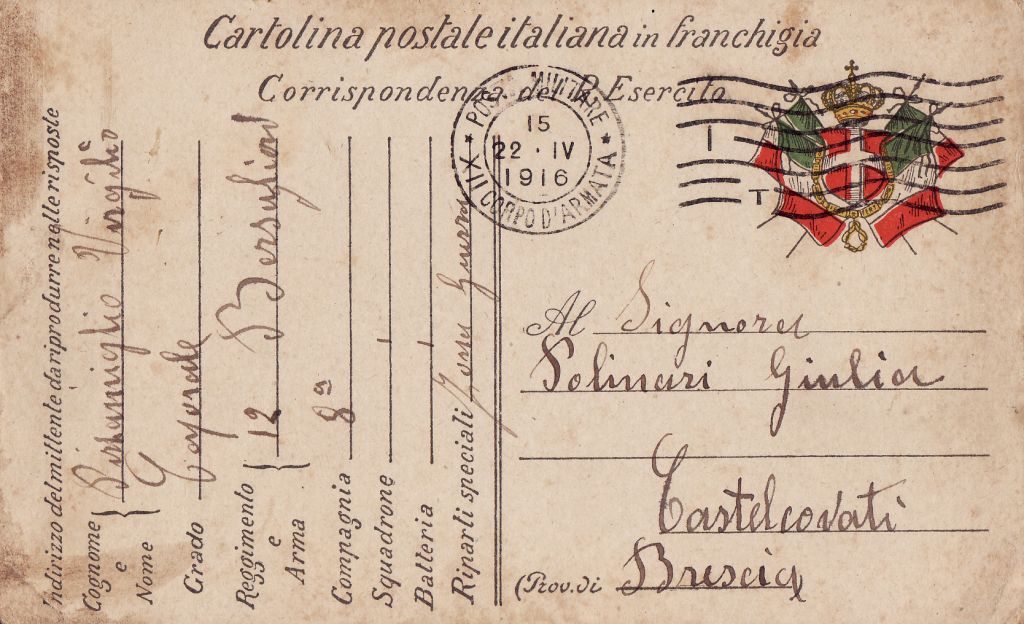 Cartolina postale italiana in franchigia
Corrispondenza del R. Esercito
POSTA MILITARE
15
22 · IV
1916
XII CORPO D'ARMATA
I
T
Indirizzo del mittente da riprodurre nelle risposte
Cognome e Nome Virgilio
Grado Caporale
Reggimento e Arma 12 Bersaglieri
Compagnia 8ª
Squadrone -
Batteria -
Riparti speciali Zona Guerra
Al Signora
Polinari Giulia
Castelcovati
(Prov. di Brescia